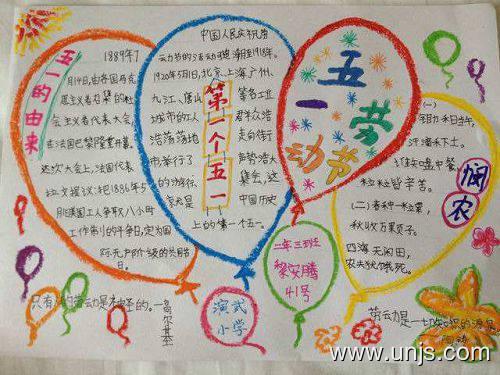 五一的由来
1889年7
月14日,由各国马克
思主义者召集的社
会主义者代表大会,
在法国巴黎隆重开幕。
这次大会上,法国代表
拉文提议:把1886年5
月1日美国工人争取八小时
工作制的斗争日,定为国
际无产阶级的共同节
日。
中国人民庆祝劳
动节的活动可追溯至1918年。
1920年5月1日,北京、上海、广州、
九江、唐山 等各工业
城市的工人 群众浩
浩荡荡地 走向街
市举行了 声势浩大
的游行、 集会,这
中国历史
上的第一个五一。
第一个五一
五一
劳动节
(一)
锄禾日当午,
汗滴禾下土。
谁知盘中餐,
粒粒皆辛苦。
(二)春种一粒粟,
秋收万颗子。
四海无闲田,
农夫犹饿死。
悯农
二年三班
41号
演武
小学
只有 劳动是神圣的。—高尔基
劳动是一切知识的源泉
陶铸
www.unjs.com